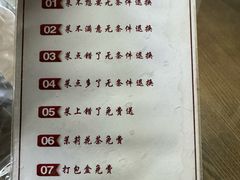 01 菜不想要无条件退换
02 菜不满意无条件退换
03 菜点错了无条件退换
04 菜点多了无条件退换
05 菜上错了免费送
06 茉莉花茶免费
07 打包盒免费